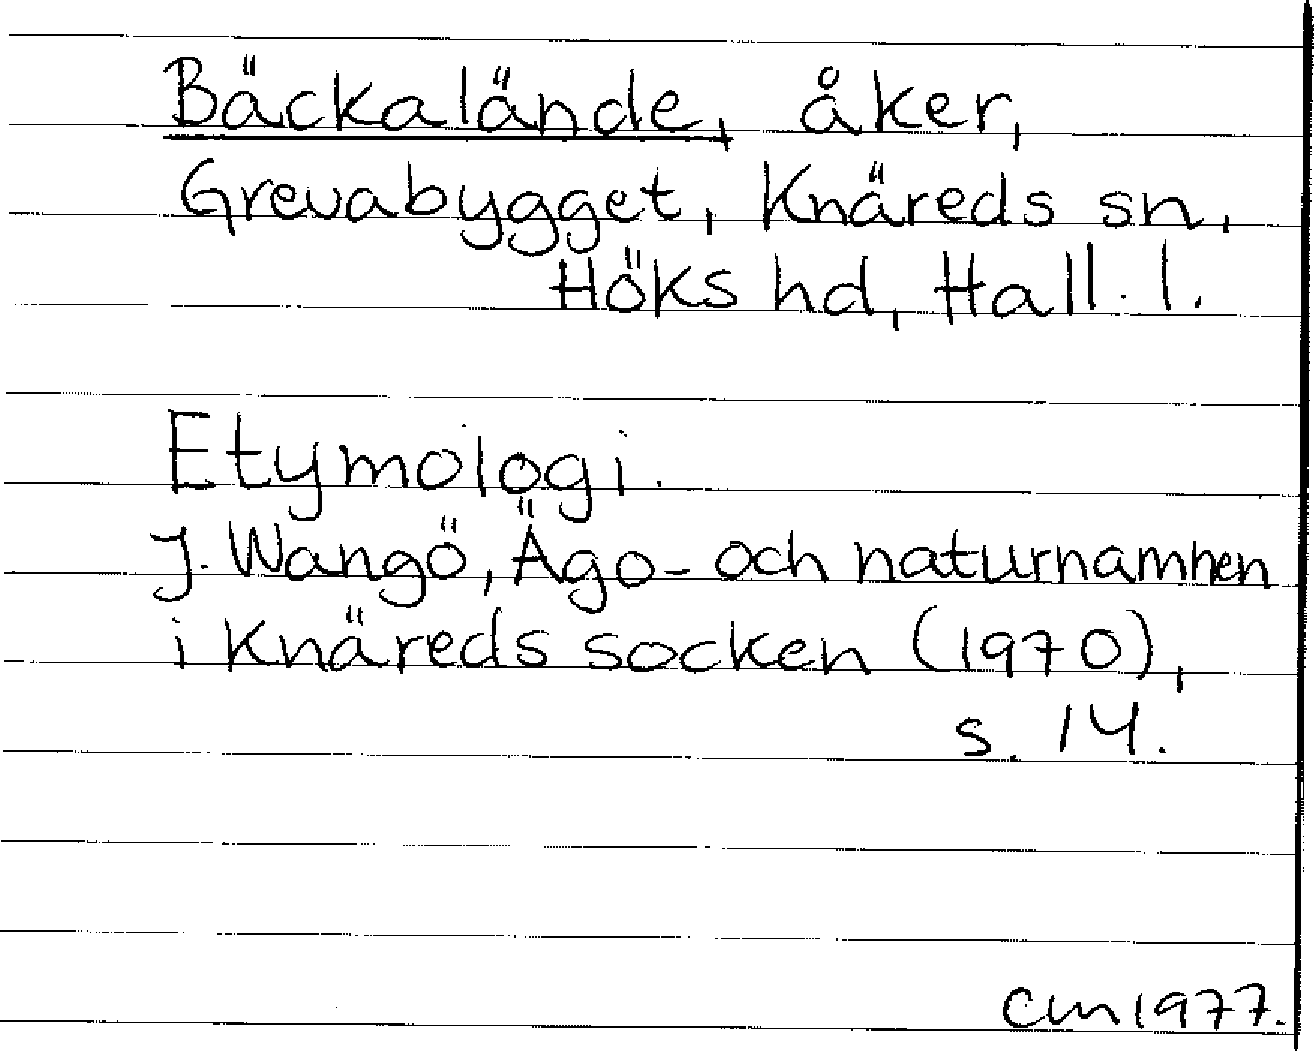 Bäckalände, åker,
Grevabygget, Knäreds sn,
Höks hd, Hall. l.
Etymologi.
J. Wangö, Ägo- och naturnamnen
i Knäreds socken (1970),
s. 14.
CM 1977.